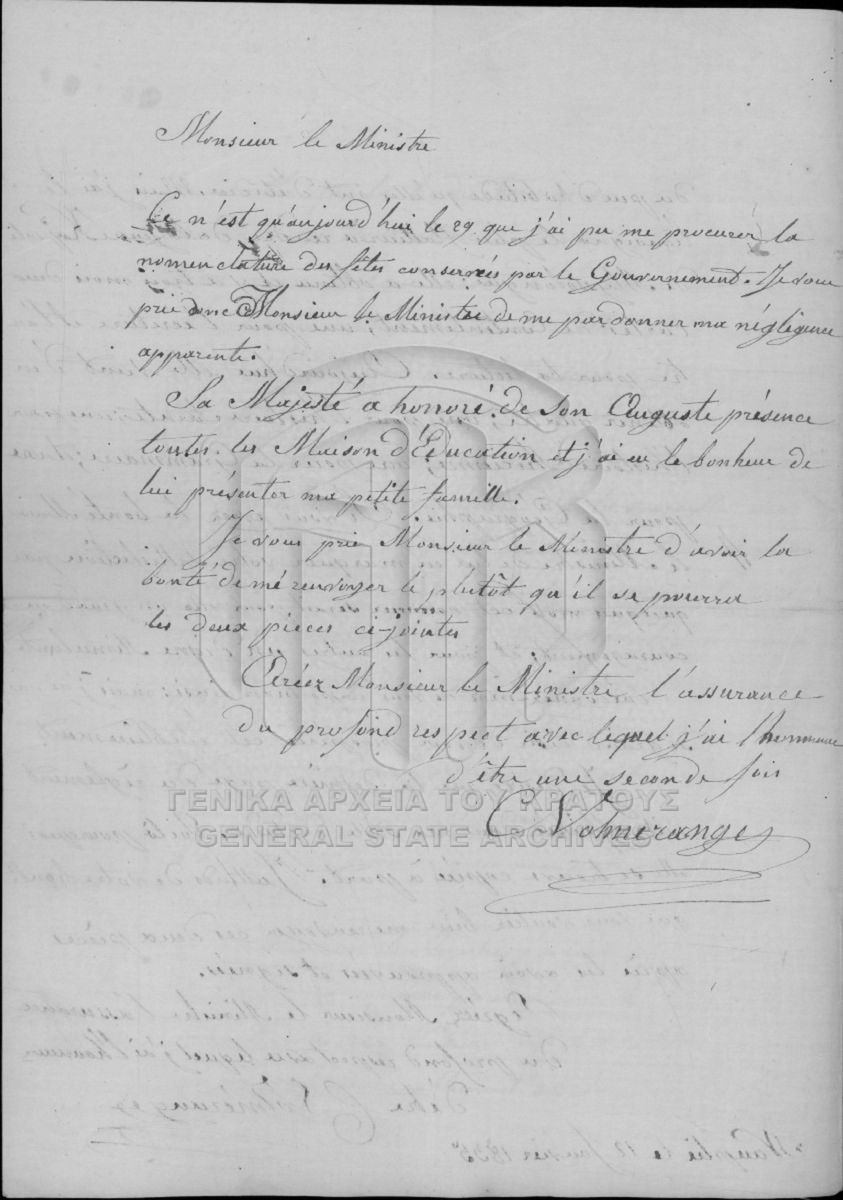 Monsieur le Ministre
Ce n'est qu'aujourd'hui le 29 que j'ai pu me procurer la
nomenclature des fêtes conservées par le Gouvernement. Je vous
prie donc Monsieur le Ministre de me pardonner ma négligence
apparente.
Sa Majesté a honoré de son Auguste présence
toutes les Maison d'Éducation et j'ai eu le bonheur de
lui présenter ma petite famille.
Je vous prie Monsieur le Ministre d'avoir la
bonté de me renvoyer le plutôt qu'il se pourra
les deux pièces ci-jointes
Agréez Monsieur le Ministre l'assurance
du profond respect avec lequel j'ai l'honneur
d'être une seconde fois
ΓΕΝΙΚΑ ΑΡΧΕΙΑ ΤΟΥ ΚΡΑΤΟΥΣ
GENERAL STATE ARCHIVES
C Volmerange